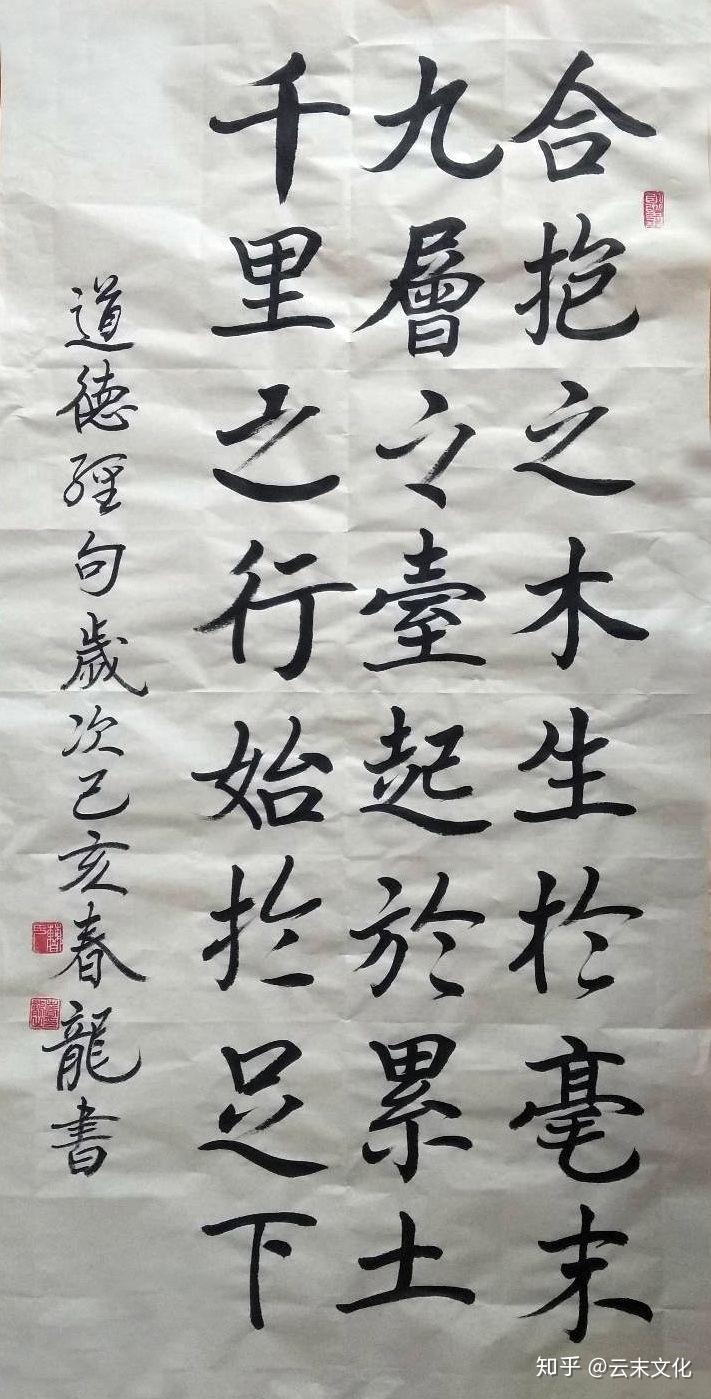 合抱之木生於毫末
九層之臺起於累土
千里之行始於足下
道德經句歲次己亥春龍書
知乎 @云末文化